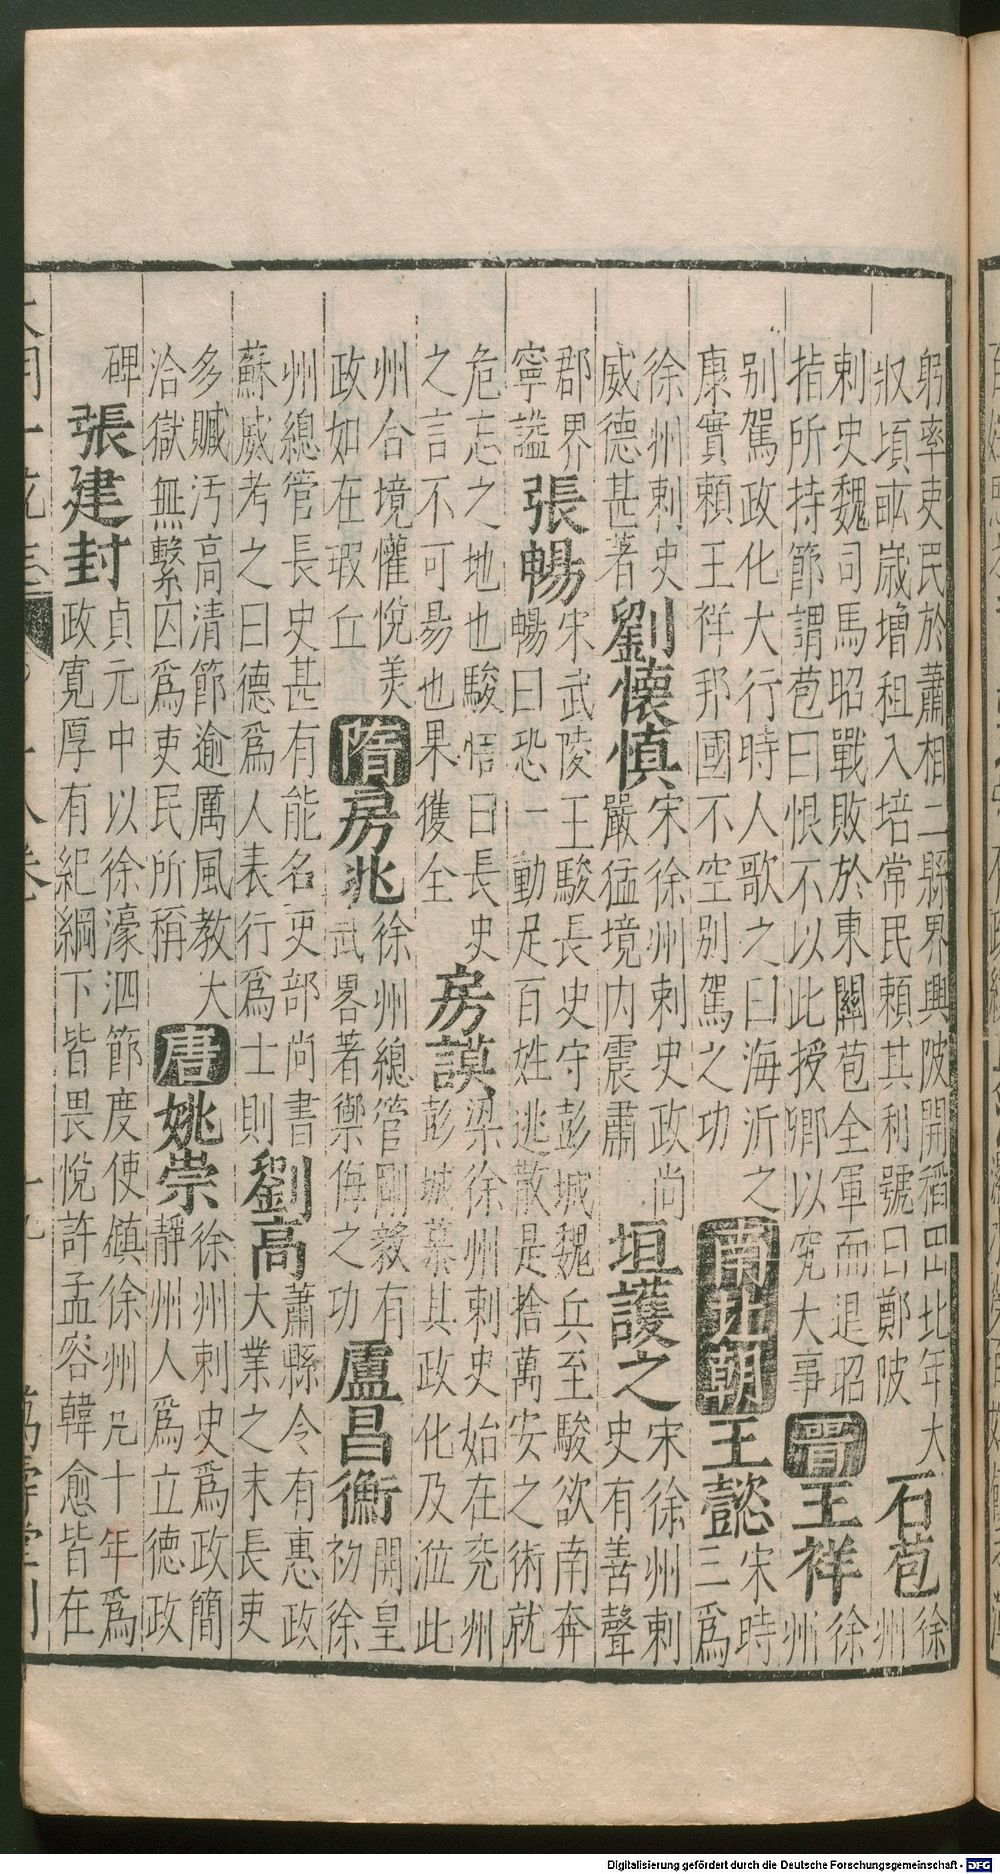 躬率吏民於蕭相二縣界興陂開稻田比年大
収頃畝歳増租入培常民頼其利號曰鄭陂
石苞
徐
州
刺史魏司馬昭戰敗於東關苞全軍而退昭
指所持節謂苞曰恨不以此授卿以究大事
晋
王祥
徐
州
别駕政化大行時人歌之曰海沂之
康實頼王祥邦國不空别駕之功
南北朝
王懿
宋時
三爲
徐州刺史
威德甚著
劉懷慎
宋徐州刺史政尚
嚴猛境内震肅
垣護之
宋徐州刺
史有善聲
郡界
寧謐
張暢
宋武陵王駿長史守彭城魏兵至駿欲南奔
暢曰恐一動足百姓逃散是捨萬安之術就
危忘之地也駿悟曰長史
之言不可易也果獲全
房謨
梁徐州刺史始在兖州
彭城慕其政化及涖此
州合境懽悅美
政如在瑕丘
隋
房兆
徐州總管剛毅有
武畧著禦侮之功
盧昌衡
開皇
初徐
州總管長史甚有能名吏部尚書
蘇威考之曰德爲人表行爲士則
劉高
蕭縣令有惠政
大業之末長吏
多贓汚高清節逾厲風教大
洽獄無繫囚爲吏民所稱
唐
姚崇
徐州刺史爲政簡
靜州人爲立德政
碑
張建封
貞元中以徐濠泗節度使鎮徐州凡十年爲
政寛厚有紀綱下皆畏悅許孟容韓愈皆在